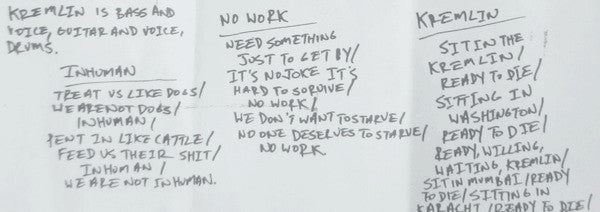 KREMLIN IS BASS AND
VOICE, GUITAR AND VOICE,
DRUMS.
INHUMAN
TREAT US LIKE DOGS/
WE ARE NOT DOGS/
INHUMAN/
PENT IN LIKE CATTLE/
FEED US THEIR SHIT/
INHUMAN/
WE ARE NOT INHUMAN.
NO WORK
NEED SOMETHING
JUST TO GET BY/
IT'S NO JOKE IT'S
HARD TO SURVIVE/
NO WORK/
WE DON'T WANT TO STARVE/
NO ONE DESERVES TO STARVE/
NO WORK.
KREMLIN
SIT IN THE
KREMLIN/
READY TO DIE/
SITTING IN
WASHINGTON/
READY TO DIE/
READY, WILLING,
WAITING, KREMLIN/
SIT IN MUMBAI/READY
TO DIE/SITTING IN
KARACHI/READY TO DIE/